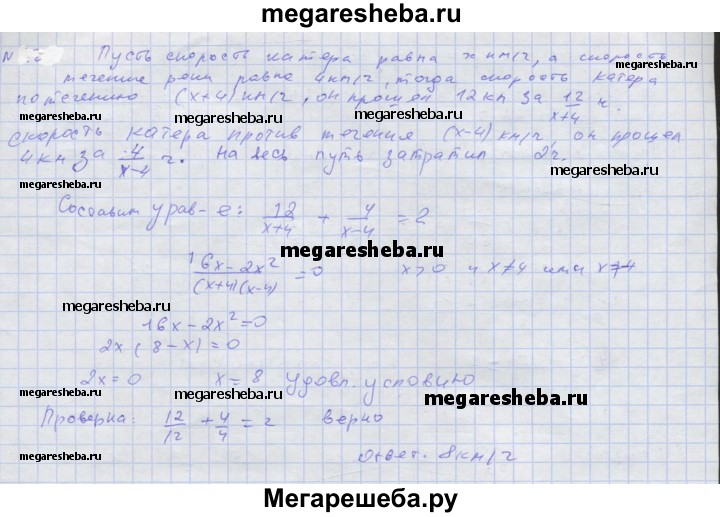 megaresheba.ru
N
Пусть скорость катера равна x км/ч, а скорость
течение реки равна 4 км/ч, тогда скорость катера
по течению (x+4) км/ч, он прошел 12 км за 12/(x+4) ч.
скорость катера против течения (x-4) км/ч, он прошел
4 км за 4/(x-4) ч. На весь путь затратил 2ч.
megaresheba.ru megaresheba.ru
Составим урав-е: 12/(x+4) + 4/(x-4) = 2
megaresheba.ru
(16x-2x²)/((x+4)(x-4)) = 0 x>0 и x≠4 или x≠4
16x-2x²=0
2x(8-x)=0
2x=0 x=8 удовл. условию
megaresheba.ru megaresheba.ru
Проверка: 12/12 + 4/4 = 2 верно
Ответ. 8 км/ч
megaresheba.ru
Мегарешеба.ру